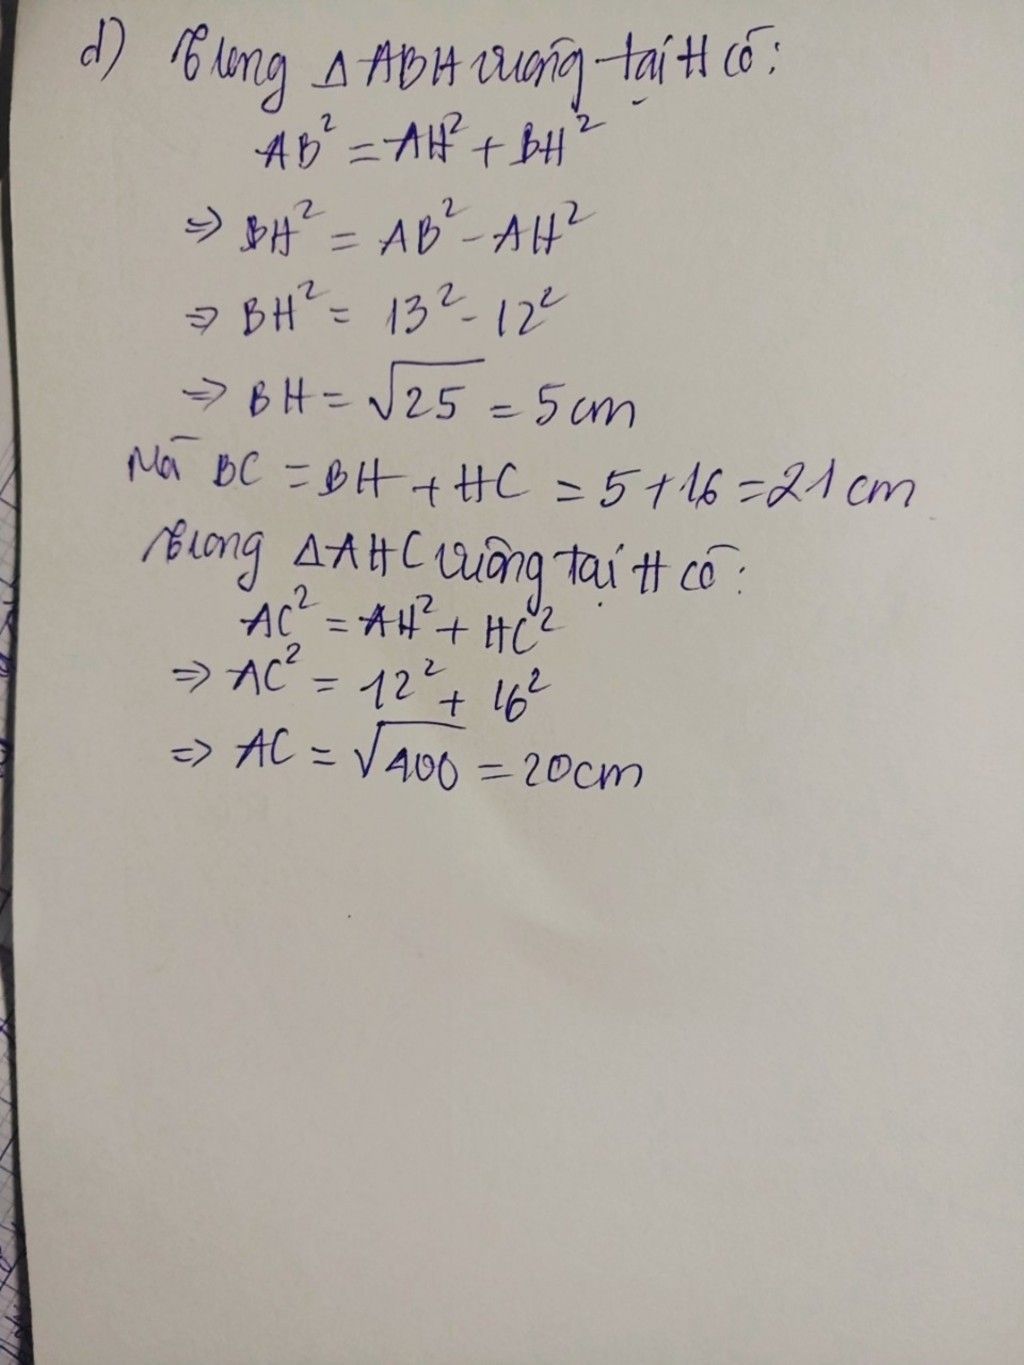 d) Trong △ABH vuông tại H có:
AB² = AH² + BH²
⇒ BH² = AB² - AH²
⇒ BH² = 13² - 12²
⇒ BH = √25 = 5cm
Mà BC = BH + HC = 5 + 16 = 21 cm
Trong △AHC vuông tại H có:
AC² = AH² + HC²
⇒ AC² = 12² + 16²
⇒ AC = √400 = 20cm